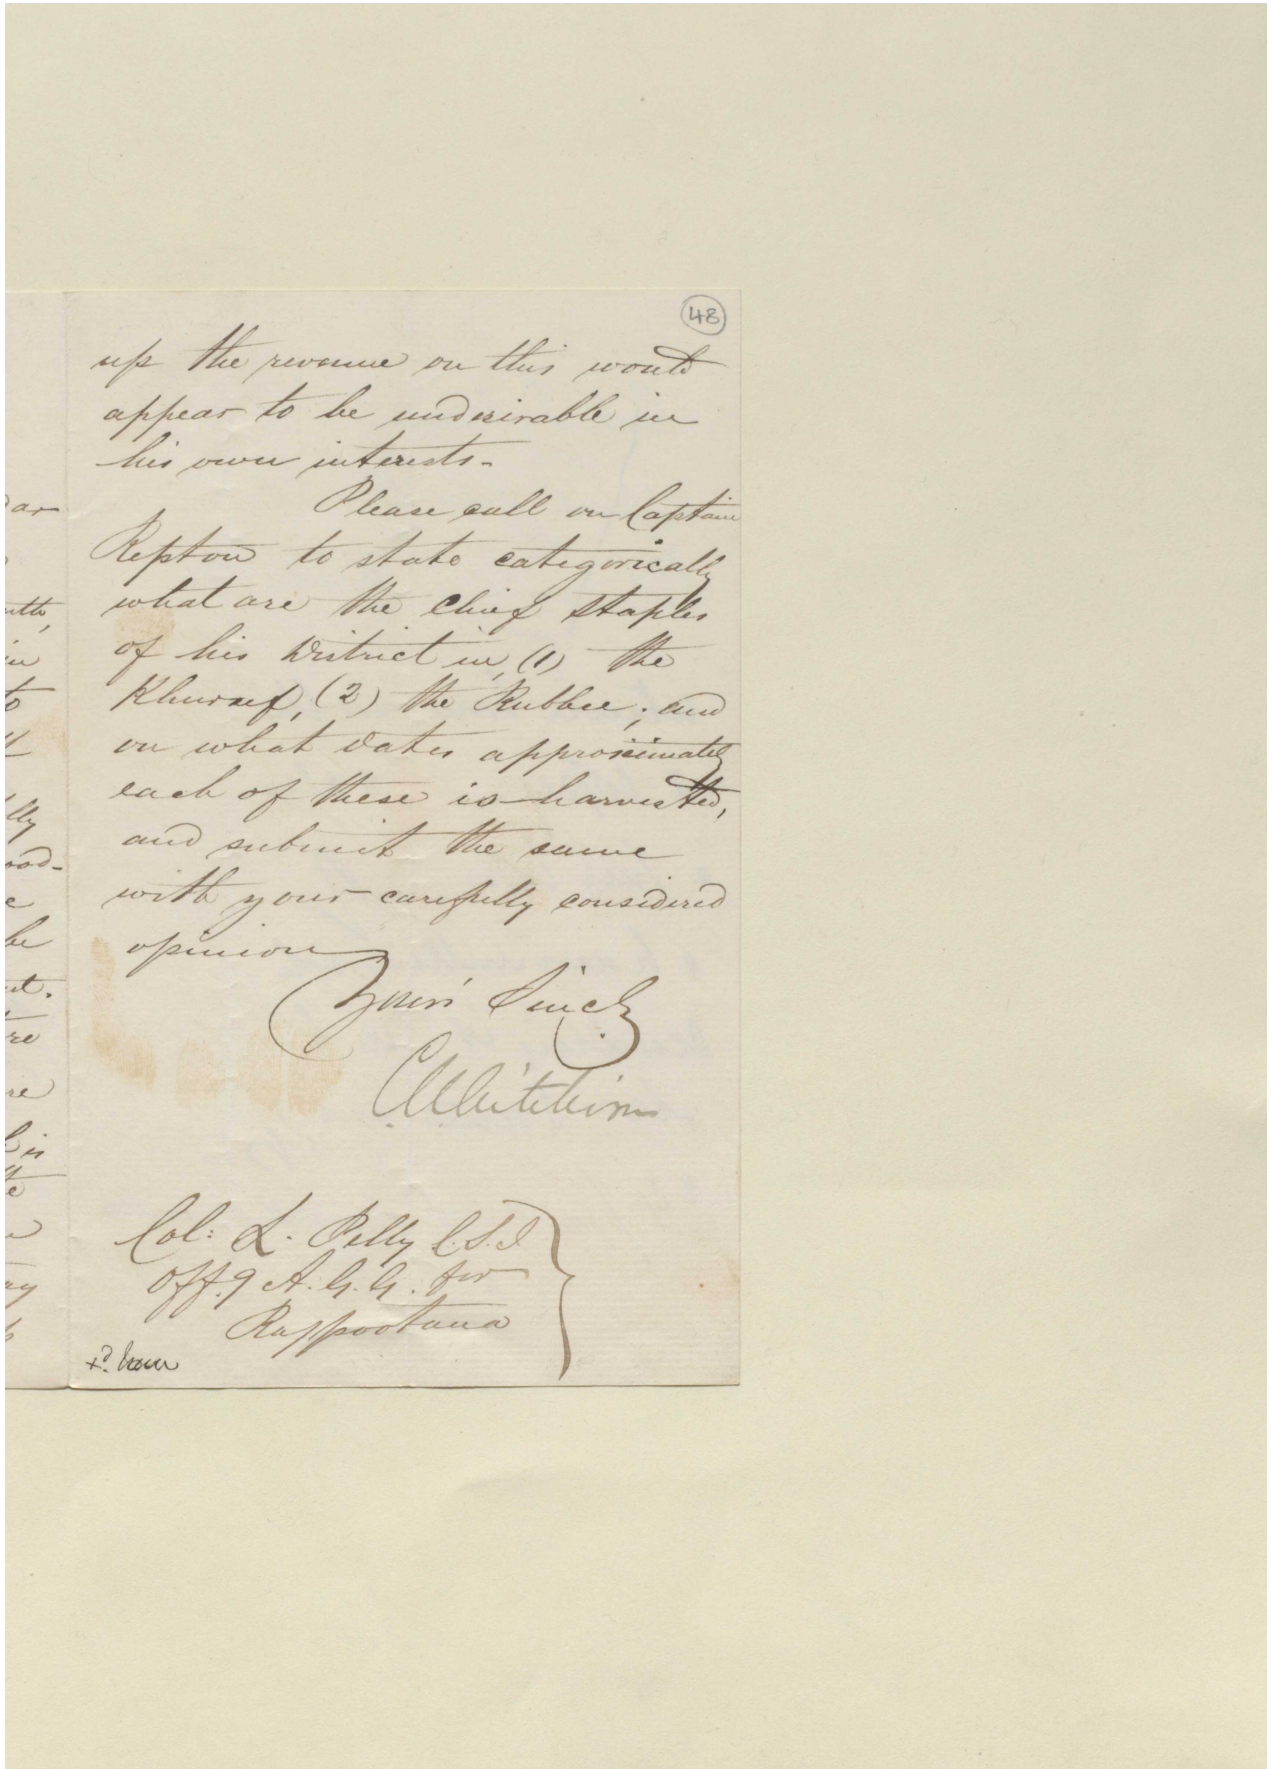 48
up the revenue on this would
appear to be undesirable in
his own interests.
Please call on Captain
Repton to state categorically
what are the chief staples
of his District in, (1) the
Khureef, (2) the Rubbee; and
on what dates approximately
each of these is harvested,
and submit the same
with your carefully considered
opinion
Yours Sincly
Col: L. Pelly C.S.I
Off.g A.G.G. for
Rajpootana